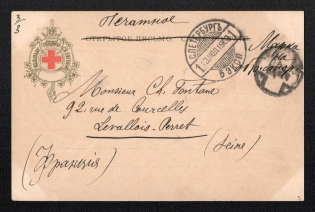 Печатное
ОТКРЫТОЕ ПИСЬМО
С.ПЕТЕРБУРГЪ
Марка
на
Monsieur Ch. Fontane
92, rue de Courcelly
Levallois-Perret
(Seine)
(Франція)